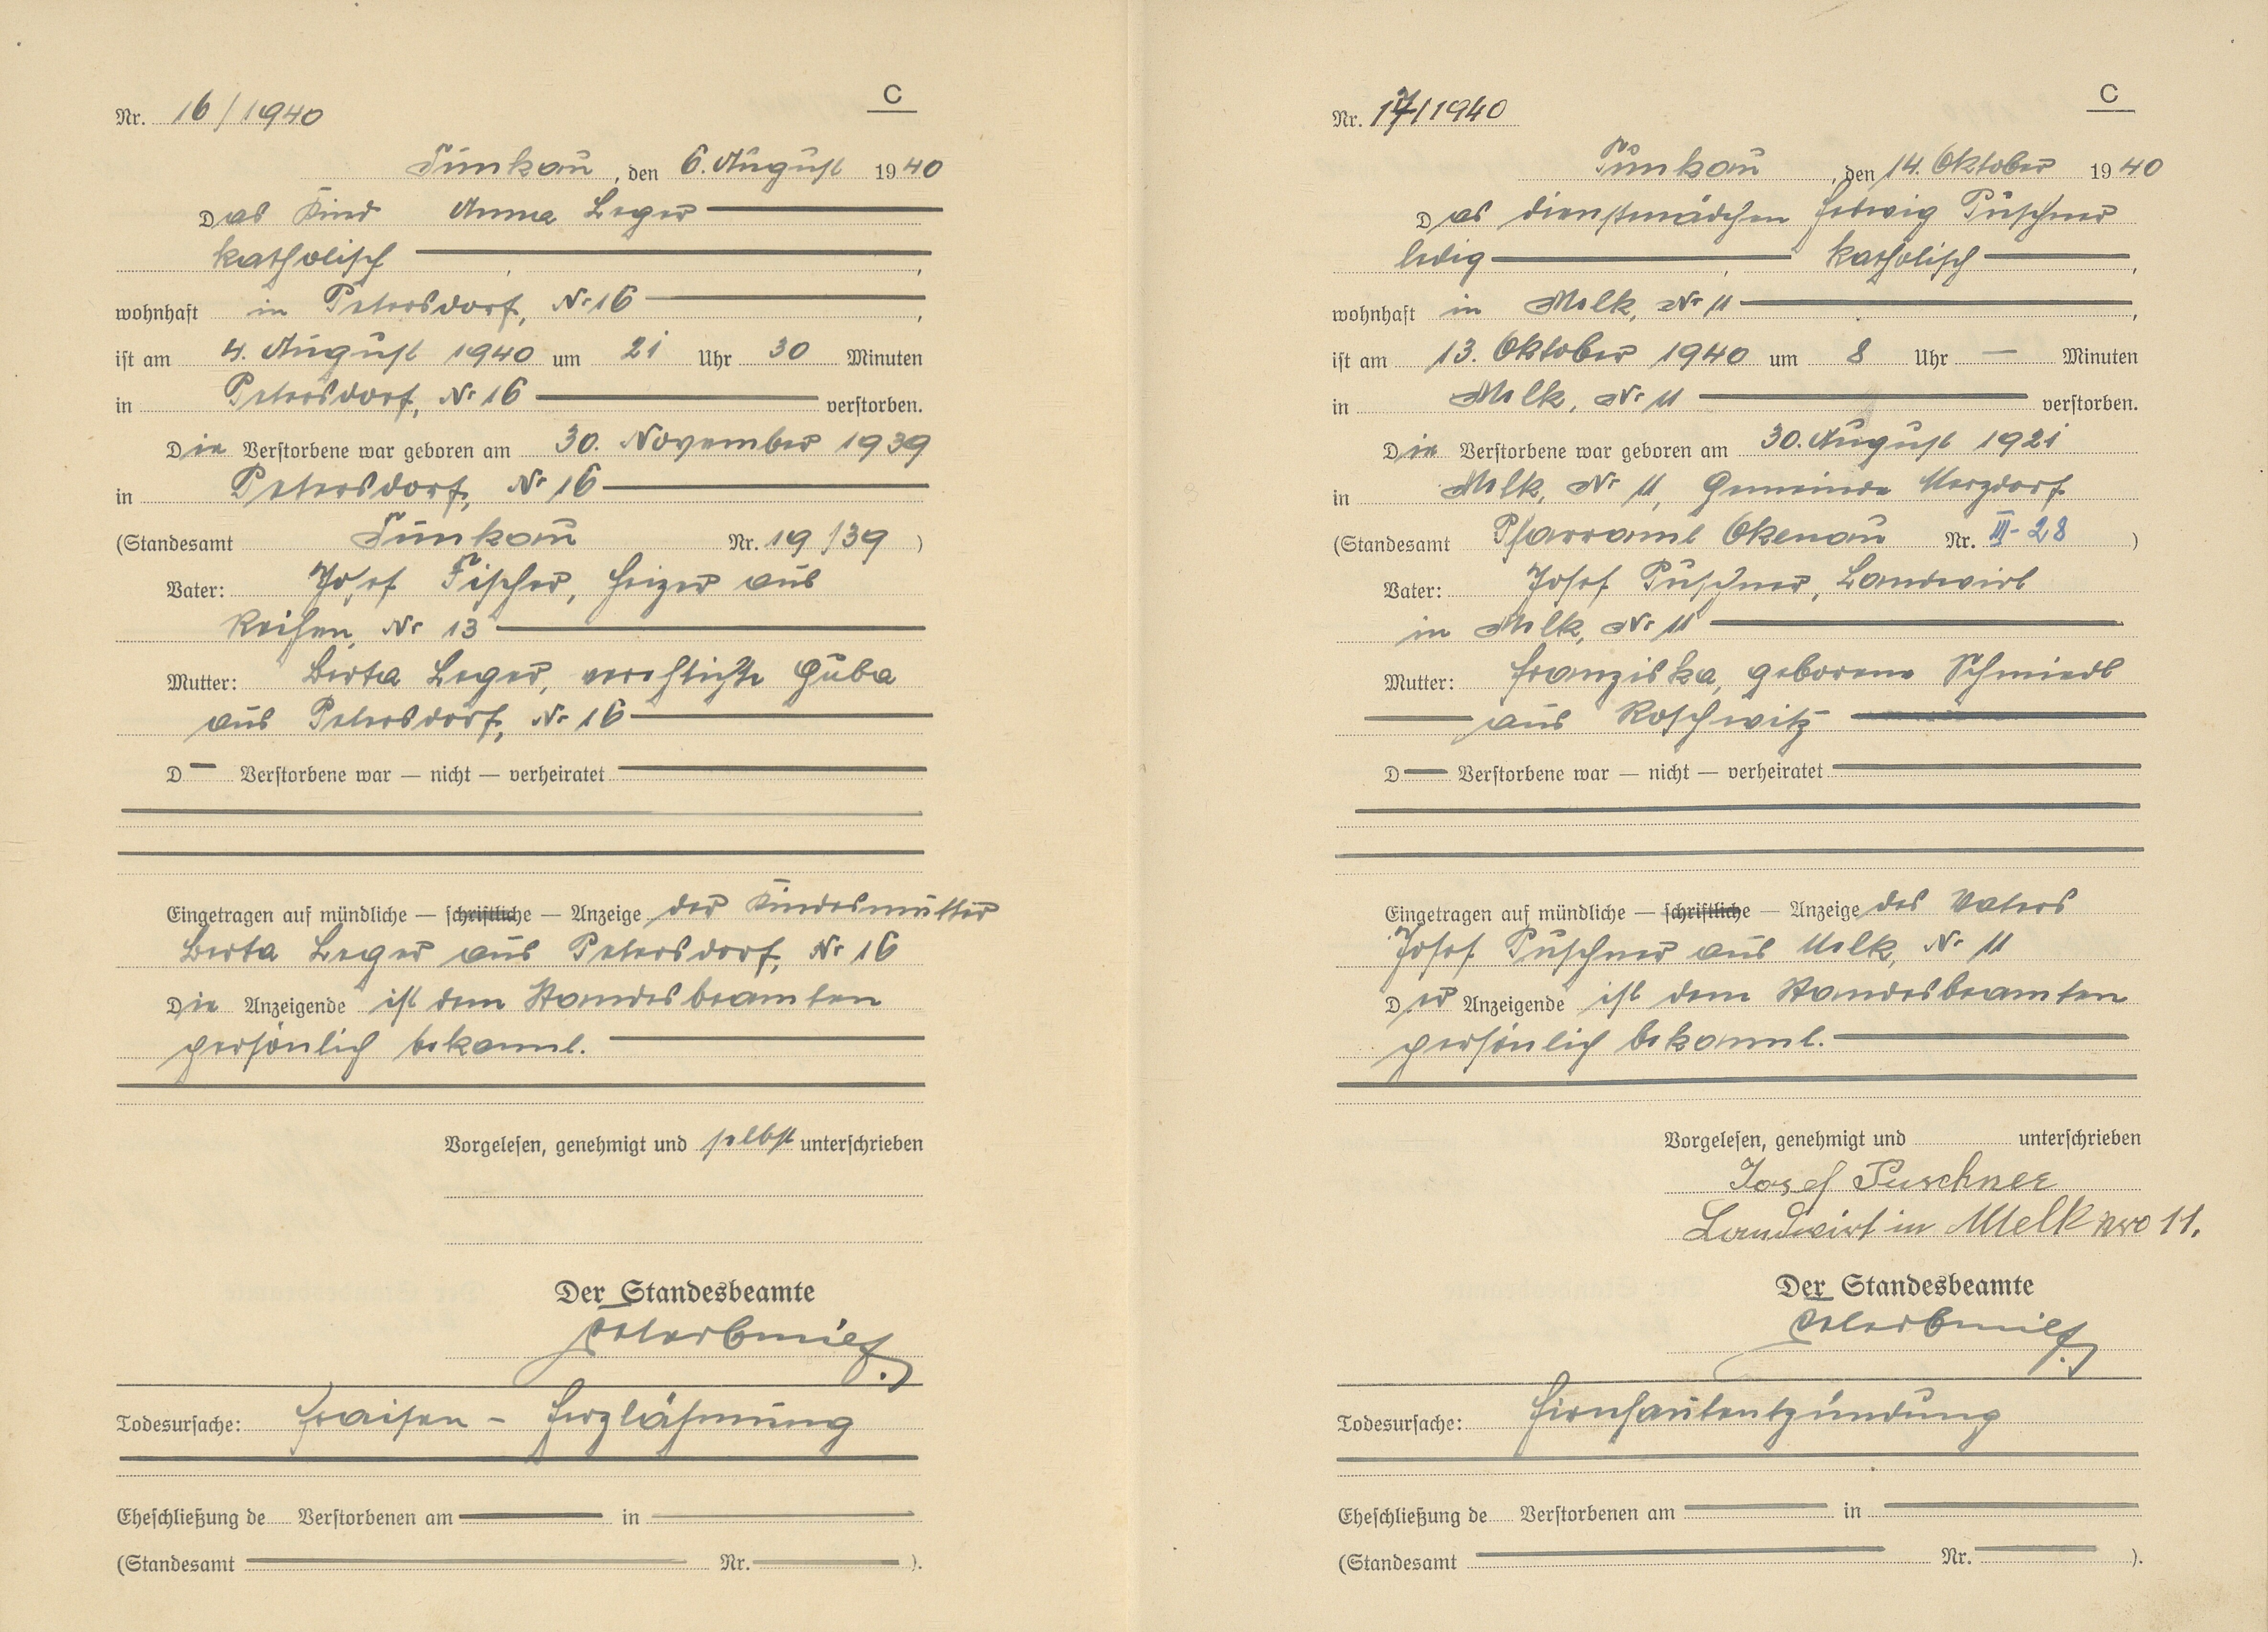 C
Nr. 16/1940
Tünkau, den 6. August 1940
Das Kind Anna Leger
katholisch
wohnhaft in Petersdorf, Nr 16
ist am 4. August 1940 um 21 Uhr 30 Minuten
in Petersdorf, Nr 16 verstorben.
Die Verstorbene war geboren am 30. November 1939
in Petersdorf, Nr 16
(Standesamt Tünkau Nr. 19/39)
Vater: Josef Fischer, Heizer aus
Reihen, Nr 13
Mutter: Berta Leger, verehelichte Guba
aus Petersdorf, Nr 16
D Verstorbene war — nicht — verheiratet
Eingetragen auf mündliche — schriftliche — Anzeige der Kindesmutter
Berta Leger aus Petersdorf, Nr 16
Die Anzeigende ist dem Standesbeamten
persönlich bekannt.
Vorgelesen, genehmigt und selbst unterschrieben
Der Standesbeamte
Todesursache: Fraisen - Herzlähmung
Eheschließung de Verstorbenen am in
(Standesamt Nr. ).
C
Nr. 17/1940
Tünkau, den 14. Oktober 1940
Das Dienstmädchen Hedwig Puschner
ledig, katholisch,
wohnhaft in Melk, Nr 11,
ist am 13. Oktober 1940 um 8 Uhr — Minuten
in Melk, Nr 11 verstorben.
Die Verstorbene war geboren am 30. August 1921
in Melk, Nr 11, Gemeinde Merzdorf
(Standesamt Pfarramt Okenau Nr. III-28)
Vater: Josef Puschner, Landwirt
in Melk, Nr 11
Mutter: Franziska, geborene Schmiedt
aus Roschwitz
D Verstorbene war — nicht — verheiratet
Eingetragen auf mündliche — schriftliche — Anzeige des Vaters
Josef Puschner aus Melk, Nr 11
Der Anzeigende ist dem Standesbeamten
persönlich bekannt.
Vorgelesen, genehmigt und unterschrieben
Josef Puschner
Landwirt in Melk Nro 11.
Der Standesbeamte
Todesursache: Hirnhautentzündung
Eheschließung de Verstorbenen am in
(Standesamt Nr. ).